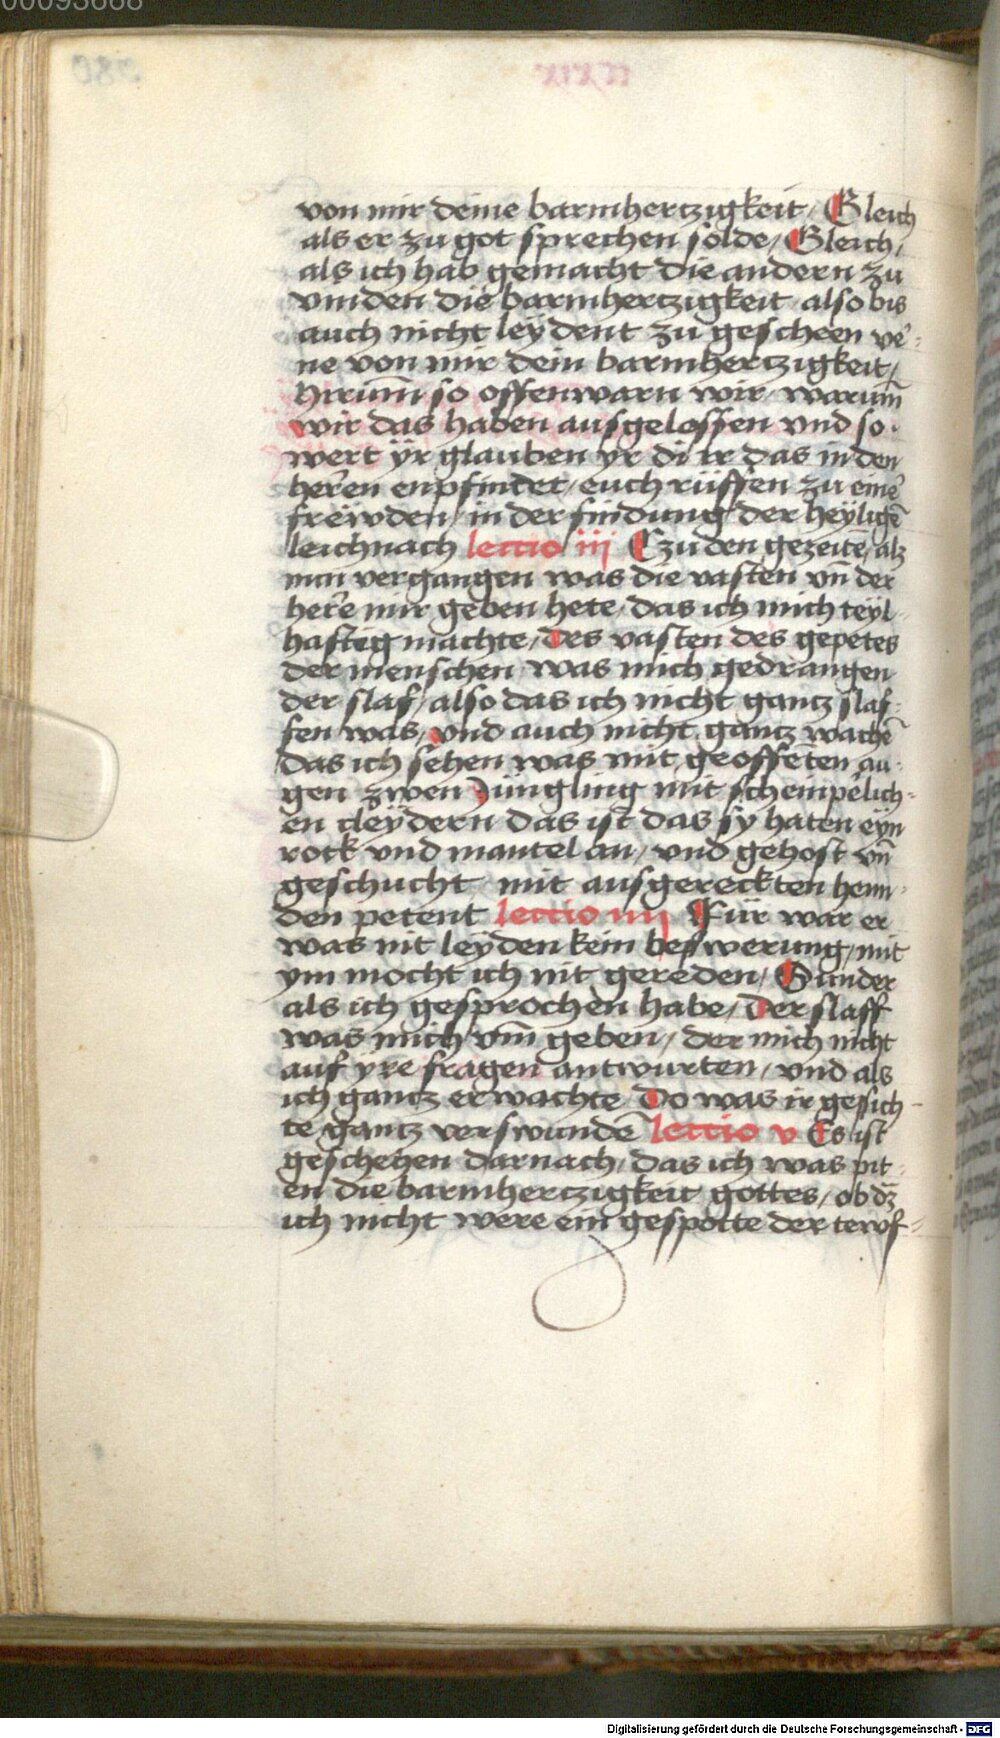 00093668
von mir deine barmhertzigkeit / Gleich
als er zu got sprechen sölde / Gleich /
als ich hab gemacht die andern zu
vinden die barmhertzigkeit also bis
auch nicht leÿdent zu gescheen ve-
ne von mir dein barmhertzigkeit /
hirum̄ so offenwarn wir warum̄
wir das haben ausgelossen vnd so
wert ÿr glauben yr di ir das in den
herēn enpfindet / euch rüffen zu einē
frewden / in der findung der heÿligē
leichnach lectio iij Czu den gezeitē / alz
nun vergangen was die vasten vn̄ der
here mir geben hete / das ich mich teÿl
hafteg machte / Des vasten des gepetes
der menschen was mich gedrangen
der slaf / also das ich nicht gantz slaf-
fen was / vnd auch nicht gantz wachē
das ich sehen was mit geoffēten au-
gen zwen Jüngling mit scheinpēlich-
en cleÿdern das ist das sÿ haten eÿn
rock vnd mantel an / vnd gehost vn̄
geschucht mit ausgereckten henn-
den petent lectio iiij Für war er
was nit leÿden kein beswerung / mit
ym mocht ich nit gereden / Sunder
als ich gesprochen habe / Der slaff
was mich vm̄ geben / der mich nicht
auf yre fragen antwurten / vnd als
ich gantz erwachte Do was ir gesich-
te gantz verswundē lectio v Es ist
geschehen darnach / das ich was pit-
en die barmhertzigkeit gottes / ob dz
ich nicht were ein gespotte der tewf-
Digitalisierung gefördert durch die Deutsche Forschungsgemeinschaft - DFG